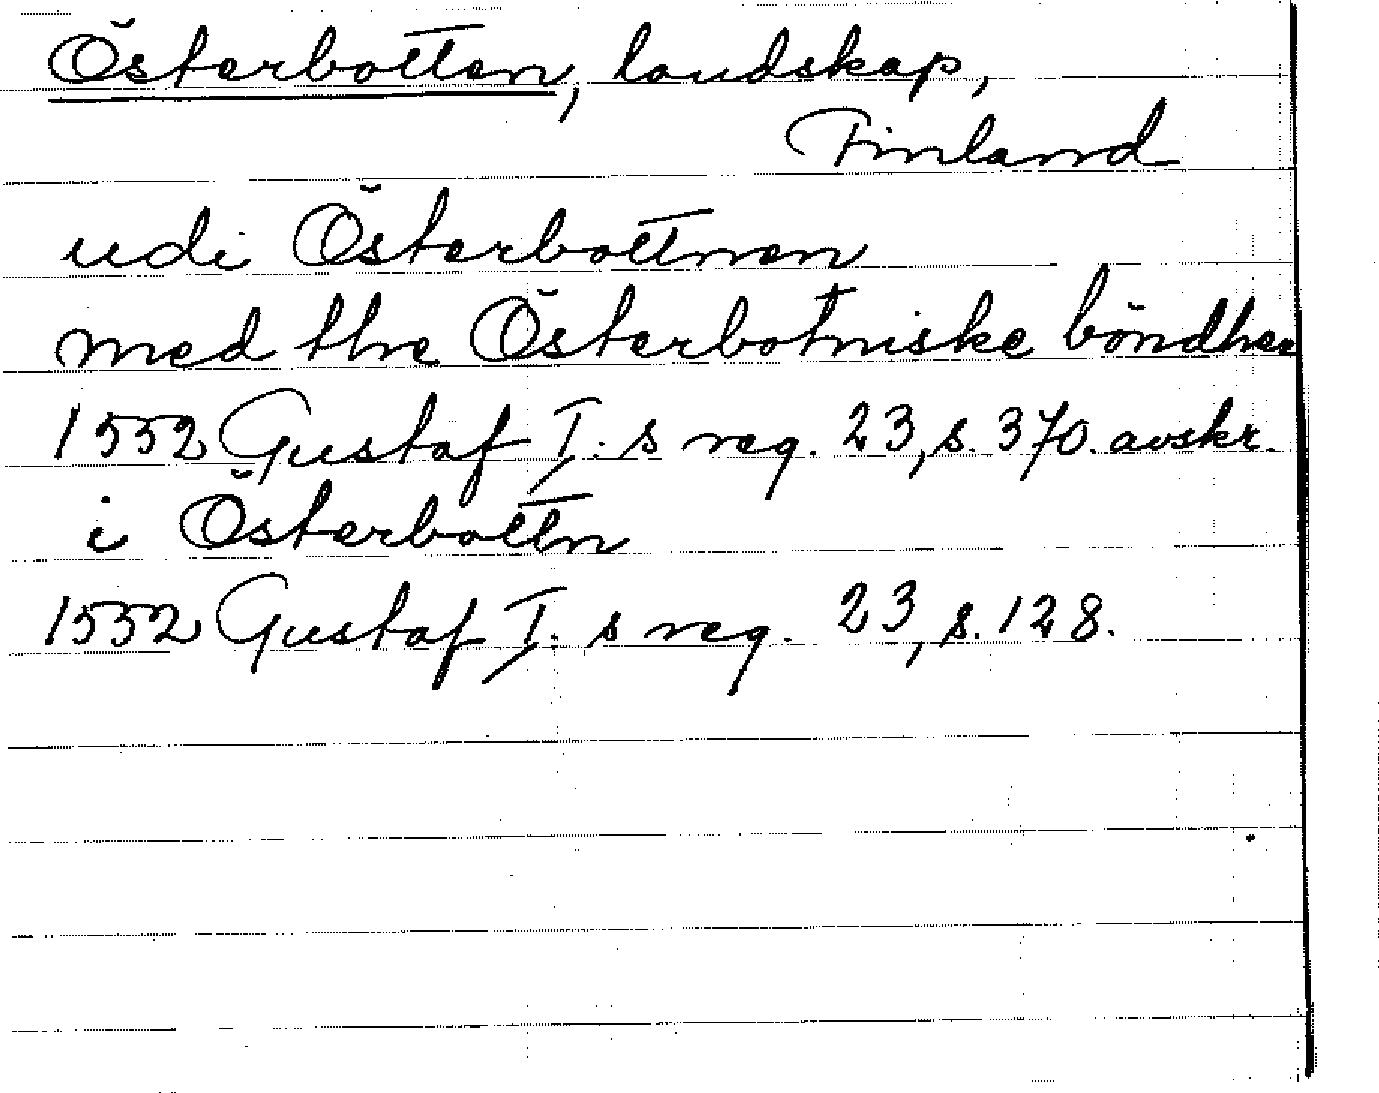 Österbotten, landskap,
Finland
udi Österbottnen
med the Österbotniske böndher
1552 Gustaf I:s reg. 23, s. 370. avskr.
i Österbottn
1552 Gustaf I:s reg. 23, s. 128.